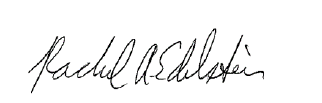 Rachel A Edelstein